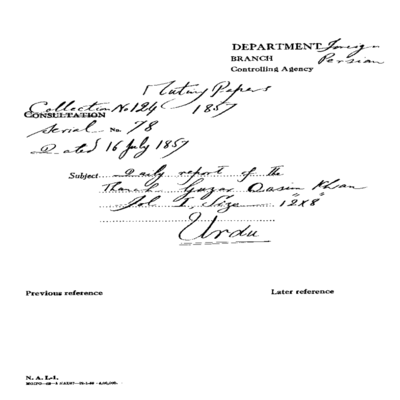 DEPARTMENT Foreign
BRANCH Persian
Controlling Agency
Mutiny Papers
Collection No 124 1857
CONSULTATION
Serial No. 78
Dated 16 July 1857
Subject Daily report of the
Thanah Guzar Qasim Khan
Fol I, Size 12"x8"
Urdu
Previous reference
Later reference
N. A. I.-1.